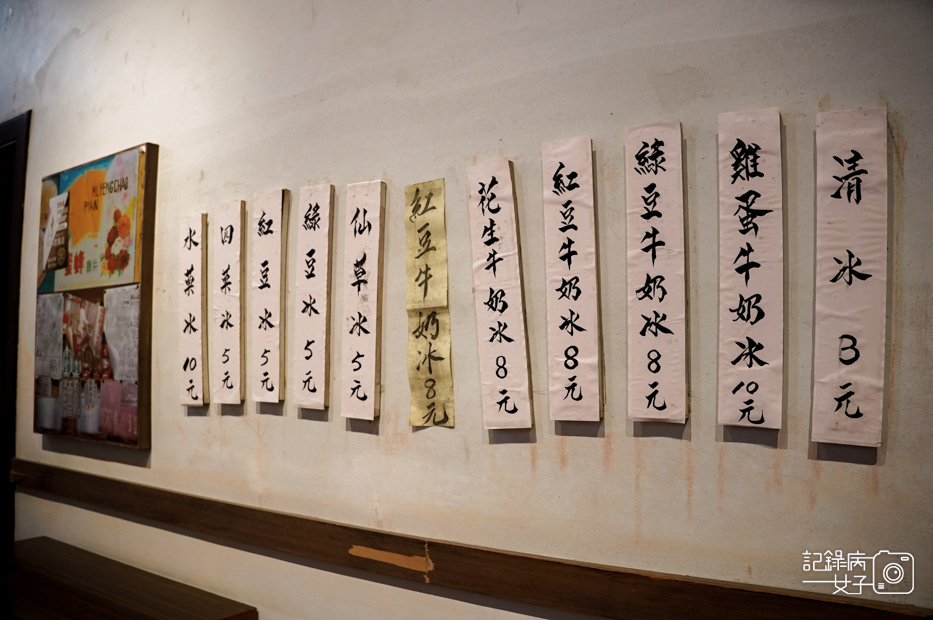 清冰3元
雞蛋牛奶冰10元
綠豆牛奶冰8元
紅豆牛奶冰8元
花生牛奶冰8元
紅豆牛奶冰8元
仙草冰5元
綠豆冰5元
紅豆冰5元
四菓冰5元
水菓冰10元
MI FENG CHAO
PIAN
記錄病
女子